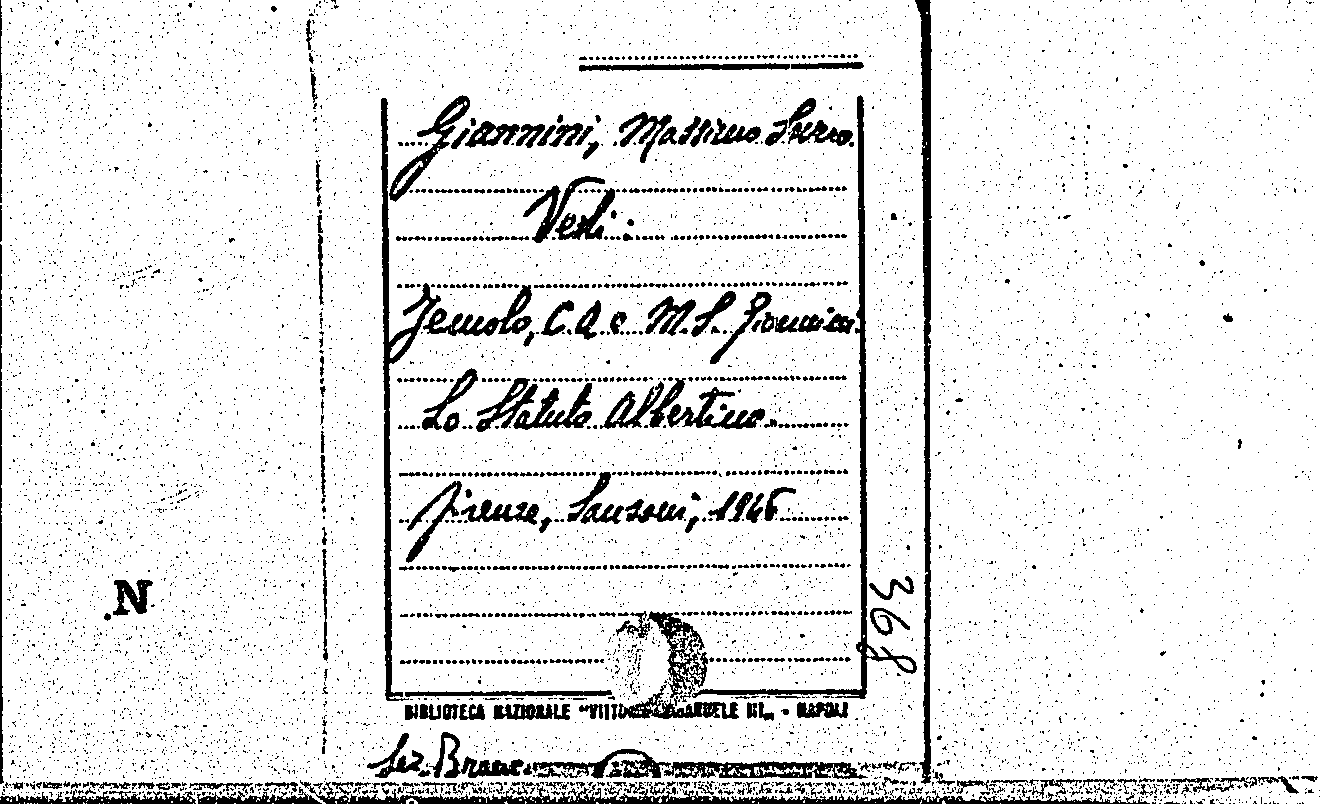 Giannini, Massimo Severo.
Vedi:
Jemolo, C.A e M.S. Giannini.
Lo Statuto Albertino.
Firenze, Sansoni, 1946
N
368
BIBLIOTECA NAZIONALE "VITTORIO EMANUELE III„ - NAPOLI
Sez.